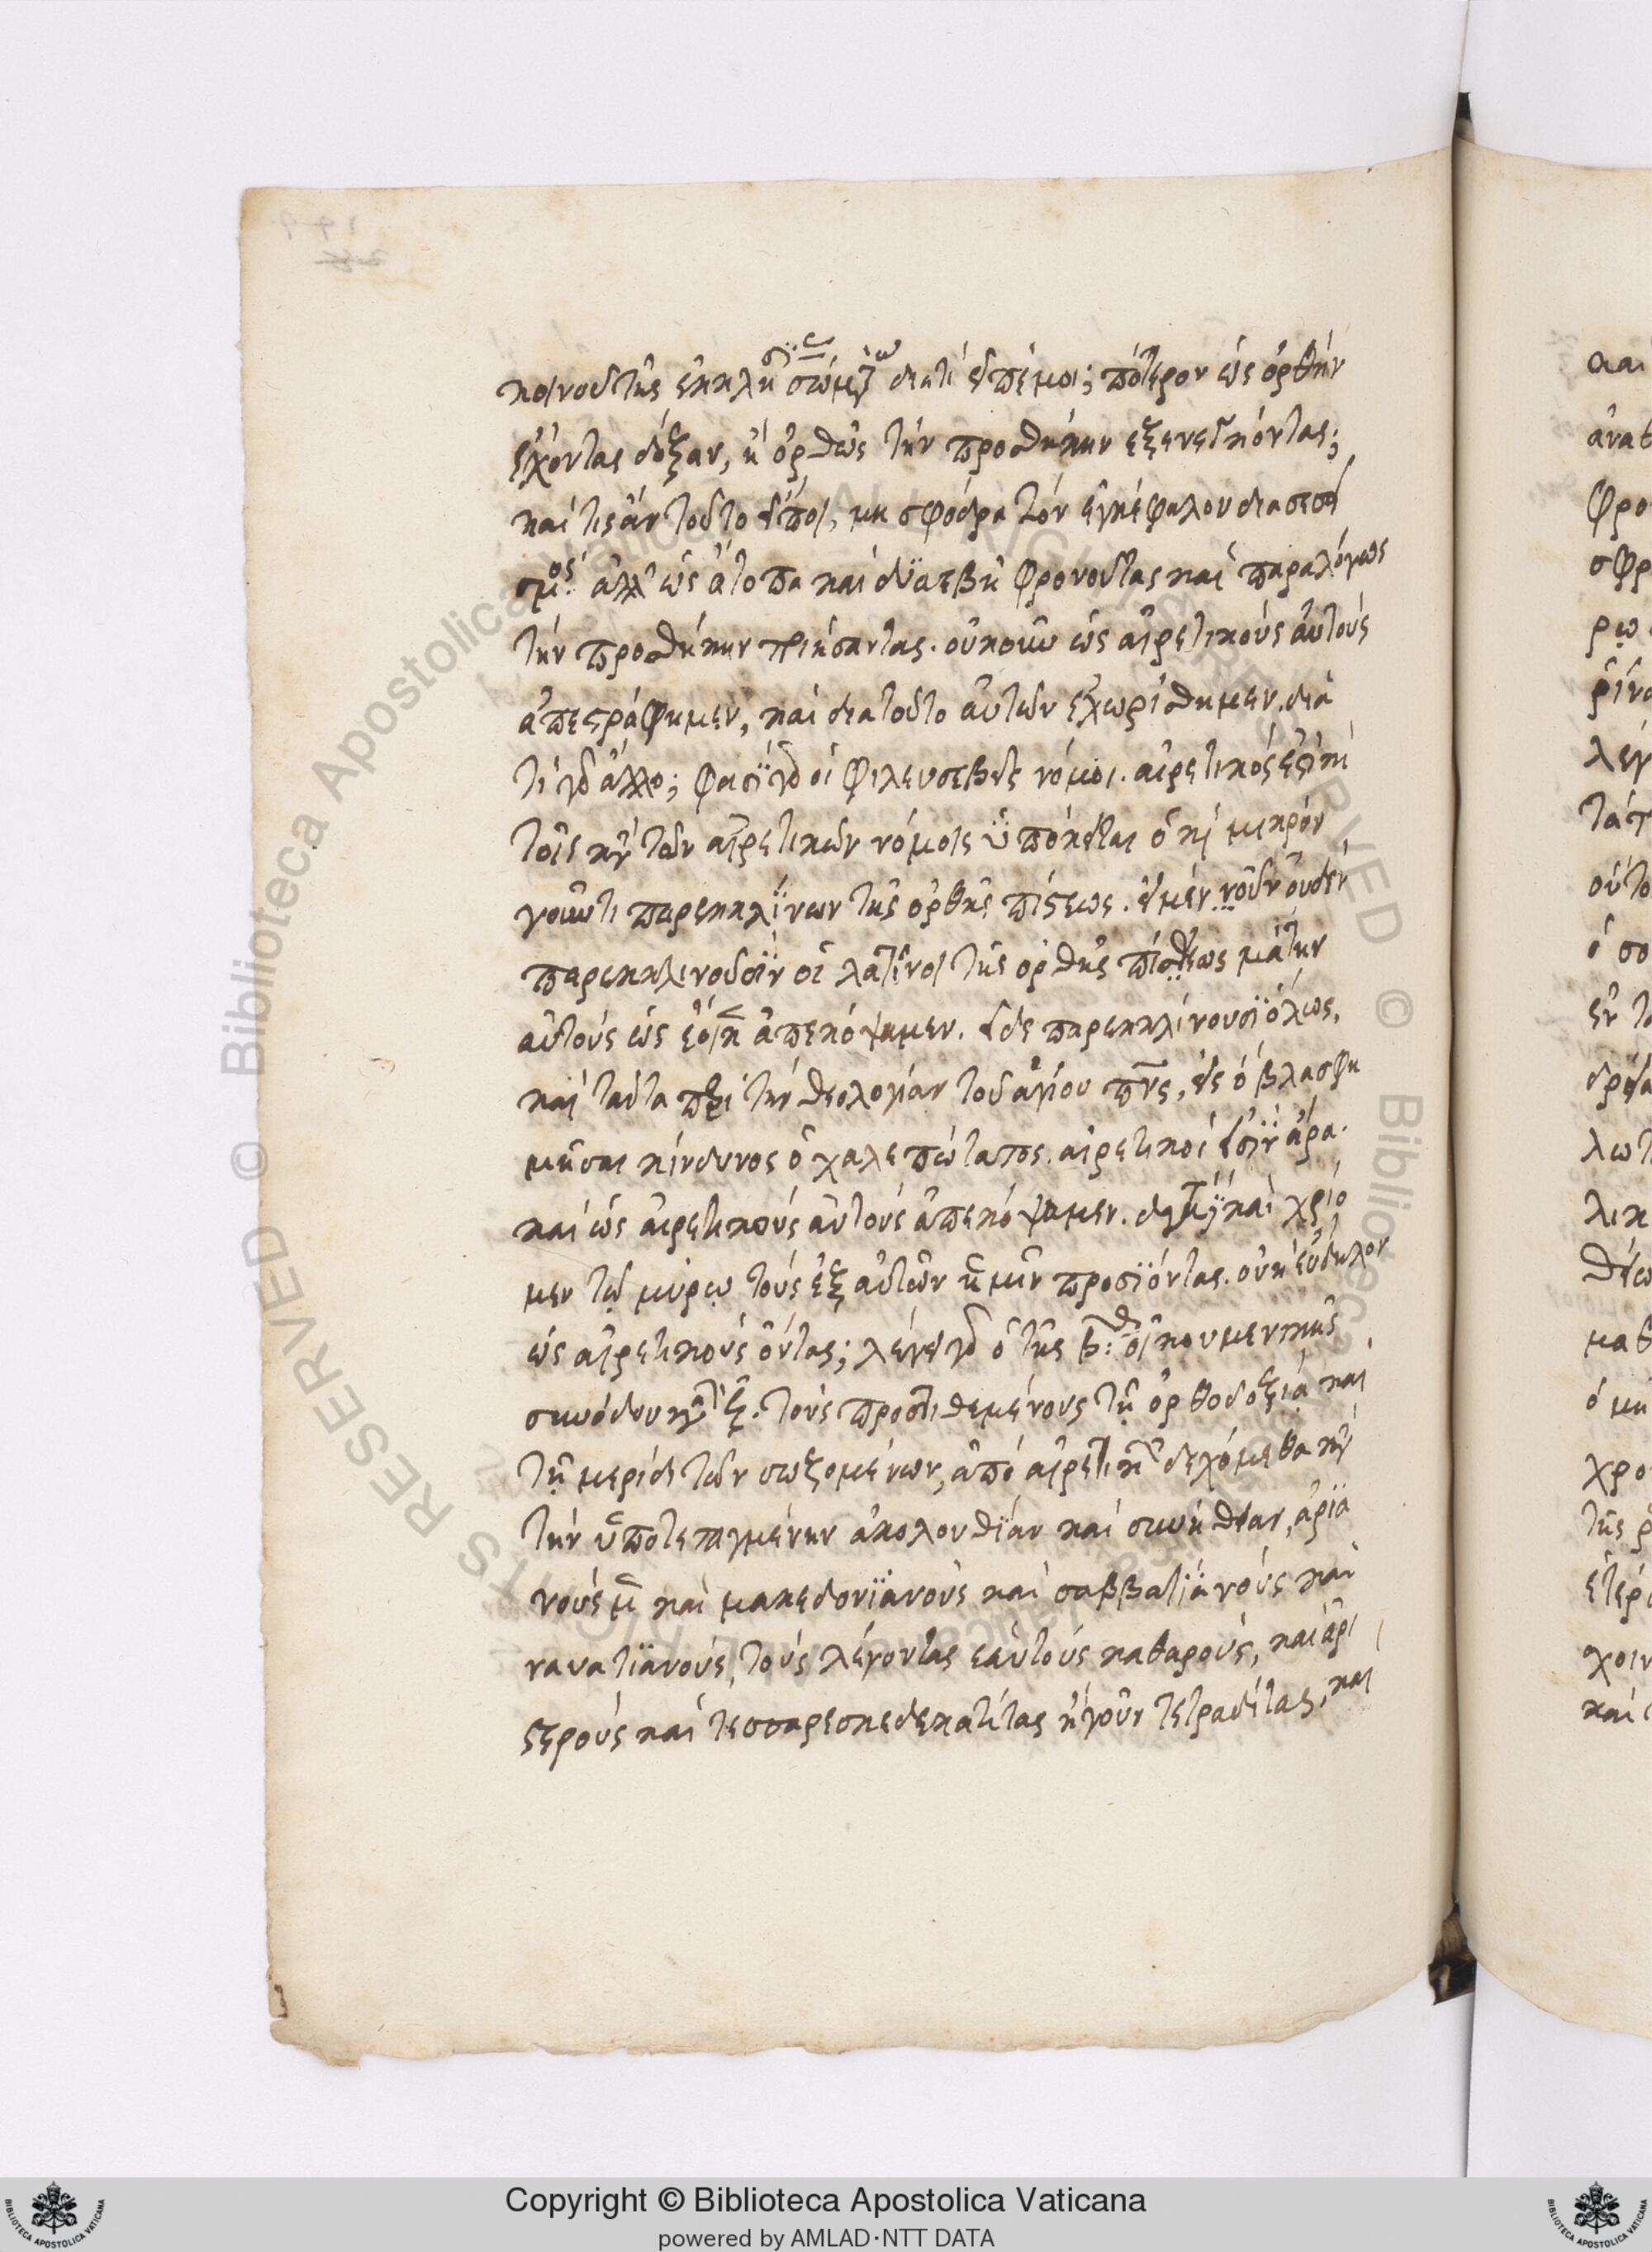 κοινοῦ τῆς ἐκκλησίας σώματος διατί εἰπέμοι; πότερον ὡς ὀρθήν
ἔχοντας δόξαν, ἢ ὀρθῶς τὴν προσθήκην ἐξενεγκόντας;
καὶ τίς ἂν τοῦτο εἴποι, μὴ σφόδρα τὸν ἐγκέφαλον διασεση
σμένος ἀλλ' ὡς ἄτοπα καὶ δυσσεβῆ φρονοῦντας καὶ παραλόγως
τὴν προσθήκην ποιήσαντας. οὐκοῦν ὡς αἱρετικοὺς αὐτοὺς
ἀπεστράφημεν, καὶ διατοῦτο αὐτῶν ἐχωρίσθημεν. διὰ
τί γὰρ ἄλλο; φασὶ γὰρ οἱ φιλευσεβεῖς νόμοι. αἱρετικός ἐστι καὶ
τοῖς κατὰ τῶν αἱρετικῶν νόμοις ὑπόκειται ὁ καὶ μικρόν
γοῦν τι παρεκκλίνων τῆς ὀρθῆς πίστεως. εἰ μὲν οὖν οὐδὲν
παρεκκλίνουσιν οἱ λατῖνοι τῆς ὀρθῆς πίστεως μάτην
αὐτοὺς ὡς ἔοικεν ἀπεκόψαμεν. εἰ δὲ παρεκκλίνουσι ὅλως,
καὶ ταῦτα περὶ τὴν θεολογίαν τοῦ ἁγίου πνς, εἰς ὃ βλασφη
μῆσαι κίνδυνος ὁ χαλεπώτατος. αἱρετικοί εἰσιν ἄρα.
καὶ ὡς αἱρετικοὺς αὐτοὺς ἀπεκόψαμεν. διατί καὶ χρίο
μεν τῷ μύρῳ τοὺς ἐξ αὐτῶν ἡμῖν προσιόντας. οὐκ εὔδηλον
ὡς αἱρετικοὺς ὄντας; λέγει γὰρ ὁ τῆς β: οἰκουμενικῆς
συνόδου κανὼν ζ. τοὺς προστιθεμένους τῇ ὀρθοδοξίᾳ καὶ
τῇ μερίδι τῶν σωζομένων, ἀπὸ αἱρετικῶν δεχόμεθα κατὰ
τὴν ὑποτεταγμένην ἀκολουθίαν καὶ συνήθειαν, ἀρεια
νοὺς μὲν καὶ μακεδονιανοὺς καὶ σαββατιανοὺς καὶ
ναυατιανούς, τοὺς λέγοντας ἑαυτοὺς καθαρούς, καὶ ἀρι
στερούς καὶ τεσσαρεσκεδεκατίτας ἤγουν τετραδίτας, καὶ
Copyright © Biblioteca Apostolica Vaticana
powered by AMLAD·NTT DATA